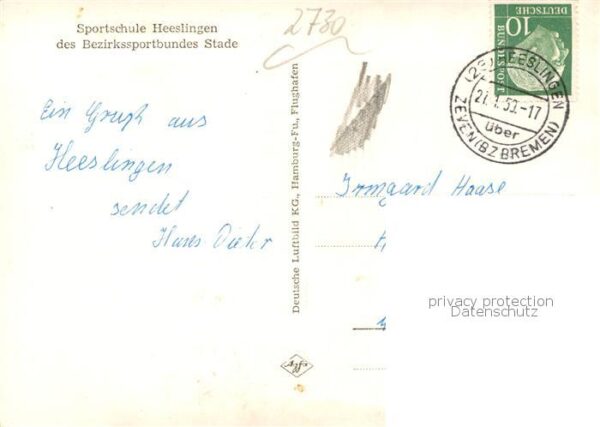 Sportschule Heeslingen
des Bezirkssportbundes Stade
2730
Ein Gruß aus
Heeslingen
sendet
Hans Dieter
Deutsche Luftbild KG., Hamburg-Fu., Flughafen
Agfa
10
DEUTSCHE
BUNDESPOST
HEESLINGEN
über
ZEVEN (BZ BREMEN)
Irmgard Haase
privacy protection
Datenschutz